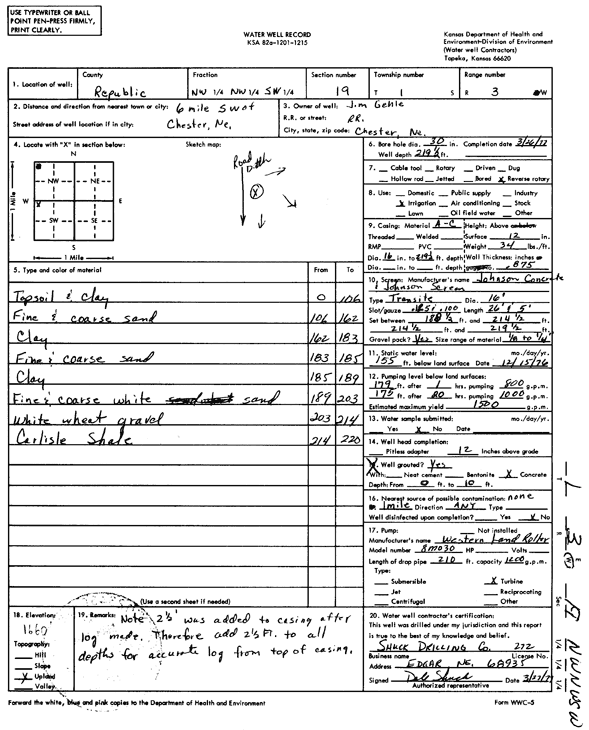 USE TYPEWRITER OR BALL
POINT PEN-PRESS FIRMLY,
PRINT CLEARLY.
WATER WELL RECORD
KSA 82a-1201-1215
Kansas Department of Health and
Environment-Division of Environment
(Water well Contractors)
Topeka, Kansas 66620
1. Location of well:
County
Republic
Fraction
NW 1/4 NW 1/4 SW 1/4
Section number
19
Township number
T 1 S
Range number
R 3 W
2. Distance and direction from nearest town or city: 6 mile SW of
Street address of well location if in city: Chester, Ne.
3. Owner of well: Jim Gehle
R.R. or street: RR.
City, state, zip code: Chester, Ne.
4. Locate with "X" in section below:
Sketch map:
N
NW NE
W E
SW SE
S
1 Mile
1 Mile
Road
X
6. Bore hole dia. 30 in. Completion date
Well depth 219 1/2 ft.
7. Cable tool Rotary Driven Dug
Hollow rod Jetted Bored X Reverse rotary
8. Use: Domestic Public supply Industry
X Irrigation Air conditioning Stock
Lawn Oil field water Other
9. Casing: Material A-C Height: Above
Threaded Welded Surface 12 in.
RMP PVC Weight 34 lbs./ft.
Dia. 16 in. to 219 1/2 ft. depth Wall Thickness: inches
Dia. in. to ft. depth .875
10. Screen: Manufacturer's name Johnson Concrete
& Johnson Screen
Type Transite Dia. 16"
Slot/gauze .100 Length 26' & 5'
Set between 188 1/2 ft. and 214 1/2 ft.
214 1/2 ft. and 219 1/2 ft.
Gravel pack? Yes Size range of material
11. Static water level: mo./day/yr.
155 ft. below land surface Date 12/15/76
12. Pumping level below land surfaces:
179 ft. after 1 hrs. pumping 800 g.p.m.
175 ft. after 20 hrs. pumping 1000 g.p.m.
Estimated maximum yield 1500 g.p.m.
13. Water sample submitted: mo./day/yr.
Yes X No Date
14. Well head completion:
Pitless adapter 12 Inches above grade
Well grouted? Yes
With: Neat cement Bentonite X Concrete
Depth: From 0 ft. to 10 ft.
16. Nearest source of possible contamination: none
1 mile Direction ANY Type
Well disinfected upon completion? Yes X No
17. Pump: Not installed
Manufacturer's name Western Land Roller
Model number 8M030 HP Volts
Length of drop pipe 210 ft. capacity 1200 g.p.m.
Type:
Submersible X Turbine
Jet Reciprocating
Centrifugal Other
5. Type and color of material From To
Topsoil & clay 0 106
Fine & coarse sand 106 162
Clay 162 183
Fine & coarse sand 183 185
Clay 185 189
Fine & coarse white sand 189 203
White wheat gravel 203 214
Carlisle Shale 214 220
(Use a second sheet if needed)
18. Elevation:
1660'
Topography:
Hill
Slope
X Upland
Valley
19. Remarks: Note 2 1/2' was added to casing after
log made. Therefore add 2 1/2 FT. to all
depths for accurate log from top of casing.
20. Water well contractor's certification:
This well was drilled under my jurisdiction and this report
is true to the best of my knowledge and belief.
SHUCK DRILLING Co. 272
Business name License No.
Address EDGAR NE. 68935
Signed Dale Shuck Date
Authorized representative
Forward the white, blue and pink copies to the Department of Health and Environment
Form WWC-5
T
R 3 E W
Sec 19
1/4 1/4 1/4
NW NW SW